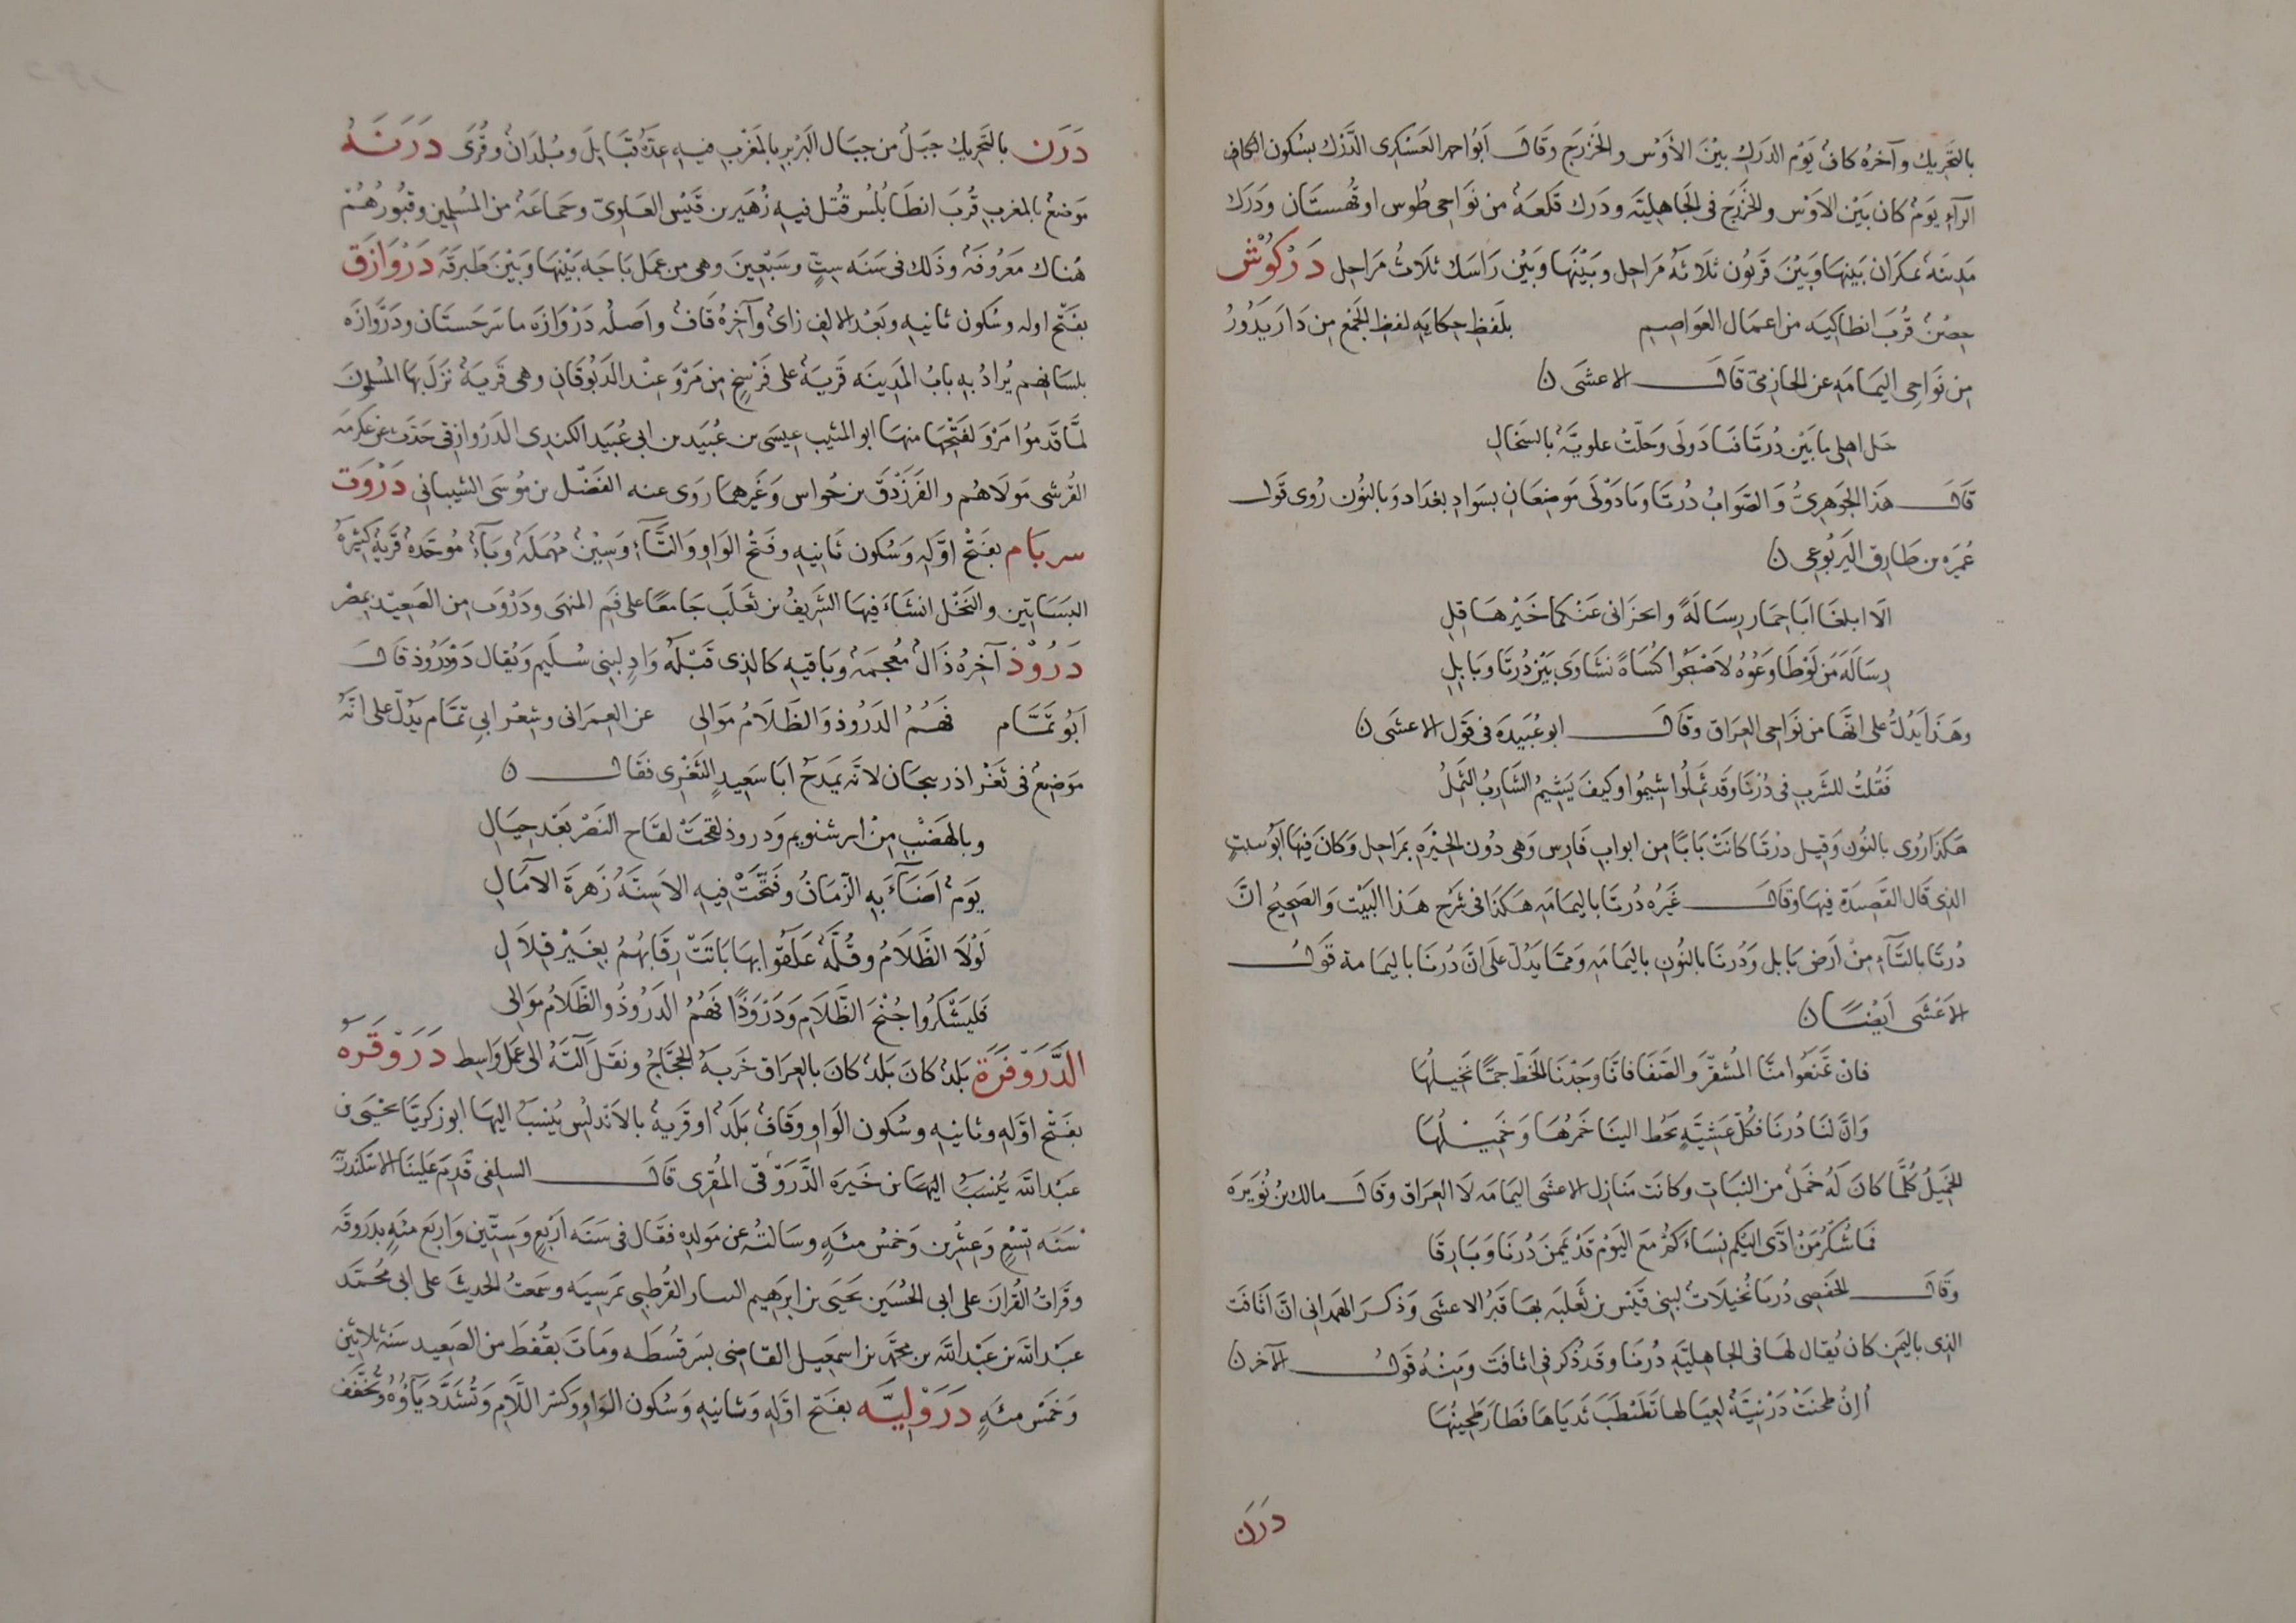 بالتحريك وآخره كاف يوم الدرك بين الأوس والخزرج وقال أبو احمد العسكرى الدرك بسكون الكاف
الرآء يوم كان بين الاوس والخزرج فى الجاهلية ودرك قلعة من نواحى طوس او قهستان ودرك
مدينة بمكران بينها وبين قربون ثلاثة مراحل وبينها وبين راسك ثلاث مراحل دركوش
حصن قرب انطاكية من اعمال العواصم بلفظ حكاية لفظ الجمع من دار يدور
من نواحى اليمامة عن الحازمى قال الاعشى ن
حل اهلى ما بين درتا فبادولى وحلت علوية بالسخال
قال هذا الجوهرى والصواب درتا ومادولى موضعان بسواد بغداد وبالنون روى قول
عميرة بن طارق اليربوعى ن
الا ابلغا ابا حمار رسالة واحزانى عنكما خيرها قلى
رسالة من لوطاوعوه لاصبحوا كساة نشاوى بين درتا وبابل
وهذا يدل على انها من نواحى العراق وقال ابو عبيدة فى قول الاعشى ن
فقلت للشرب فى درنا وقد ثملوا شيموا وكيف يشيم الشارب الثمل
هكذا روى بالنون وقيل درنا كانت بابا من ابواب فارس وهى دون الحيرة بمراحل وكان فيها أبو سبت
الذى قال القصيدة فيها وقال غيره درنا باليمامة هكذا فى شرح هذا البيت والصحيح ان
درتا بالتآء من أرض بابل ودرنا بالنون باليمامة ومما يدل على ان درنا باليمامة قول
الأعشى أيضا ن
فان تمنعوا منا المشقر والصفا فانا وجدنا الخط جما نخيلها
وان لنا درنا فكل عشية يحط الينا خمرها وخميلها
الخميل كلما كان له خمل من النبات وكانت منازل الاعشى اليمامة لا العراق وقال مالك بن نويرة
فما شكر من ادى اليكم نساءكم مع اليوم قد يممن درنا وبارقا
وقال الحفصى درنا نخيلات لبنى قيس بن ثعلبة بها قبر الاعشى وذكر الهمدانى ان اثافت
الذى باليمن كان يقال لها فى الجاهلية درنا وقد ذكر فى اثافت ومنه قول الآخر ن
أإن طحنت درنية لعيالها تطبطب ثدياها فطار طحينها
درن
درن بالتحريك جبل من جبال البربر بالمغرب فيه عدة قبايل وبلدان وقرى درنة
موضع بالمغرب قرب انطابلس قتل فيه زهير بن قيس العلوى وجماعة من المسلمين وقبورهم
هناك معروفة وذلك فى سنة ست وسبعين وهى من عمل باجة بينها وبين طبرقة دروازق
بفتح اوله وسكون ثانيه وبعد الالف زاى وآخره قاف واصله دروازه ماسرجستان ودروازه
بلسانهم يراد به باب المدينة قرية على فرسخ من مرو عند الدبوقان وهى قرية نزل بها المسلمون
لما قدموا مرو لفتحها منها ابو المثيب عيسى بن عبيد بن ابى عبيد الكندى الدروازقى حدث عن عكرمة
القرشى مولاهم والفرزدق بن حواس وغيرهما روى عنه الفضل بن موسى الشيبانى دروت
سربام بفتح اوله وسكون ثانيه وفتح الواو والتآء وسين مهملة وبآء موحدة قرية كثيرة
البساتين والنخل انشاء فيها الشريف بن ثعلب جامعا على فم المنهى ودروت من الصعيد بمصر
دروذ آخره ذال معجمة وباقيه كالذى قبله واد لبنى سليم ويقال دودروذ قال
أبو تمام فهم الدروذ والظلام موالى عن العمرانى وشعر ابى تمام يدل على انه
موضع فى ثغر اذربيجان لانه يمدح ابا سعيد الثغرى فقال ن
وبالهضب من ابرشتويم ودروذ لقحت لقاح النصر بعد حيال
يوم أضآء به الزمان وفتحت فيه الاسنة زهرة الآمال
لولا الظلام وقلة علقوا بها باتت رقابهم بغير قلال
فليشكروا جنح الظلام ودروذا فهم الدروذ والظلام موالى
الدروقرة بلد كان بلد كان بالعراق خربه الحجاج ونقل آلته الى عمل واسط دروقره
بفتح اوله وثانيه وسكون الواو وقاف بلد او قرية بالاندلس ينسب اليها ابو زكريا يحيى بن
عبد الله ينسب اليها بن خيرة الدروقى المقرى قال السلفى قدم علينا الاسكندرية
سنة تسع وعشرين وخمس مئة وسالته عن مولده فقال فى سنة اربع وستين واربع مئة بدروقة
وقرات القران على ابى الحسين يحيى بن ابرهيم القرطبى بمرسية وسمعت الحديث على ابى محمد
عبد الله بن عبد الله بن محمد بن اسمعيل القاضى بسرقسطة ومات بقفط من الصعيد سنة ثلاثين
وخمس مئة درولية بفتح اوله وثانيه وسكون الواو وكسر اللام وتشدد يآؤه وتخفف